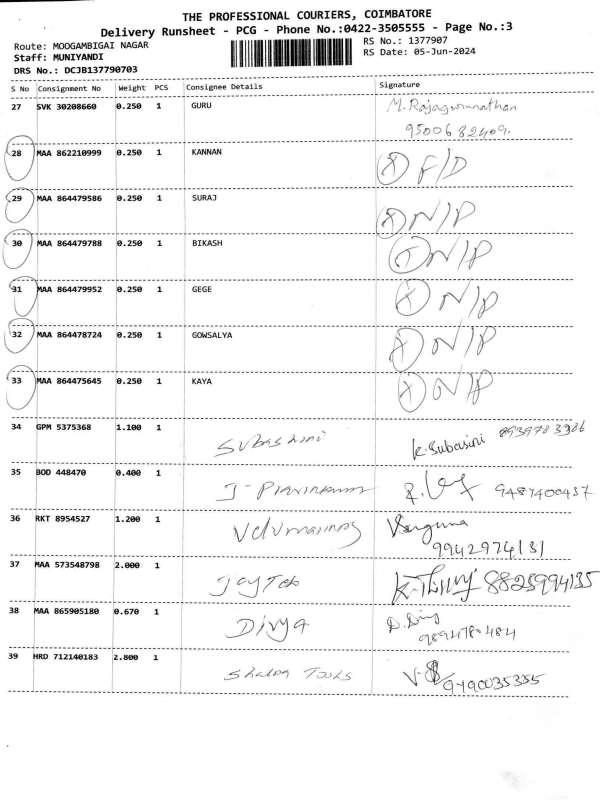 THE PROFESSIONAL COURIERS, COIMBATORE
Delivery Runsheet - PCG - Phone No.:0422-3505555 - Page No.:3
Route: MOOGAMBIGAI NAGAR RS No.: 1377907
Staff: MUNIYANDI RS Date: 05-Jun-2024
DRS No.: DCJB137790703
S No Consignment No Weight PCS Consignee Details Signature
27 SVK 30208660 0.250 1 GURU M. Rajagurunathan
9500682409.
28 MAA 862210999 0.250 1 KANNAN F/D
29 MAA 864479586 0.250 1 SURAJ N/P
30 MAA 864479788 0.250 1 BIKASH N/P
31 MAA 864479952 0.250 1 GEGE N/P
32 MAA 864478724 0.250 1 GOWSALYA N/P
33 MAA 864475645 0.250 1 KAYA N/P
34 GPM 5375368 1.100 1 Subashini K. Subasini
35 BOD 448470 0.400 1 9487400437
36 RKT 8954527 1.200 1
9942974131
37 MAA 573548798 2.000 1 8825994135
38 MAA 865905180 0.670 1 Divya
9894780484
39 HRD 712140183 2.800 1
9490035355